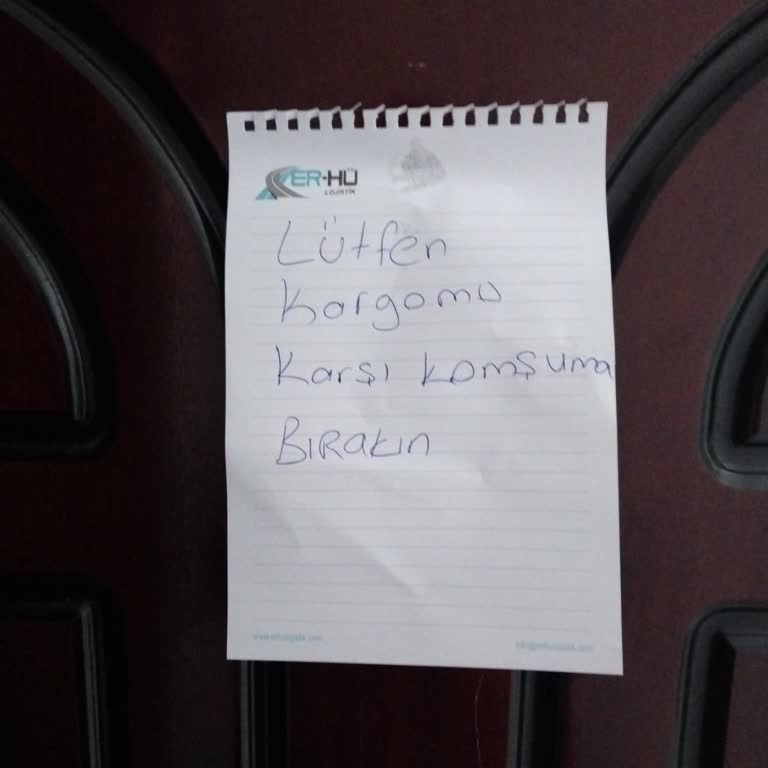 ER-HÜ
LOJİSTİK
Lütfen
Kargomu
Karşı komşuma
Bırakın